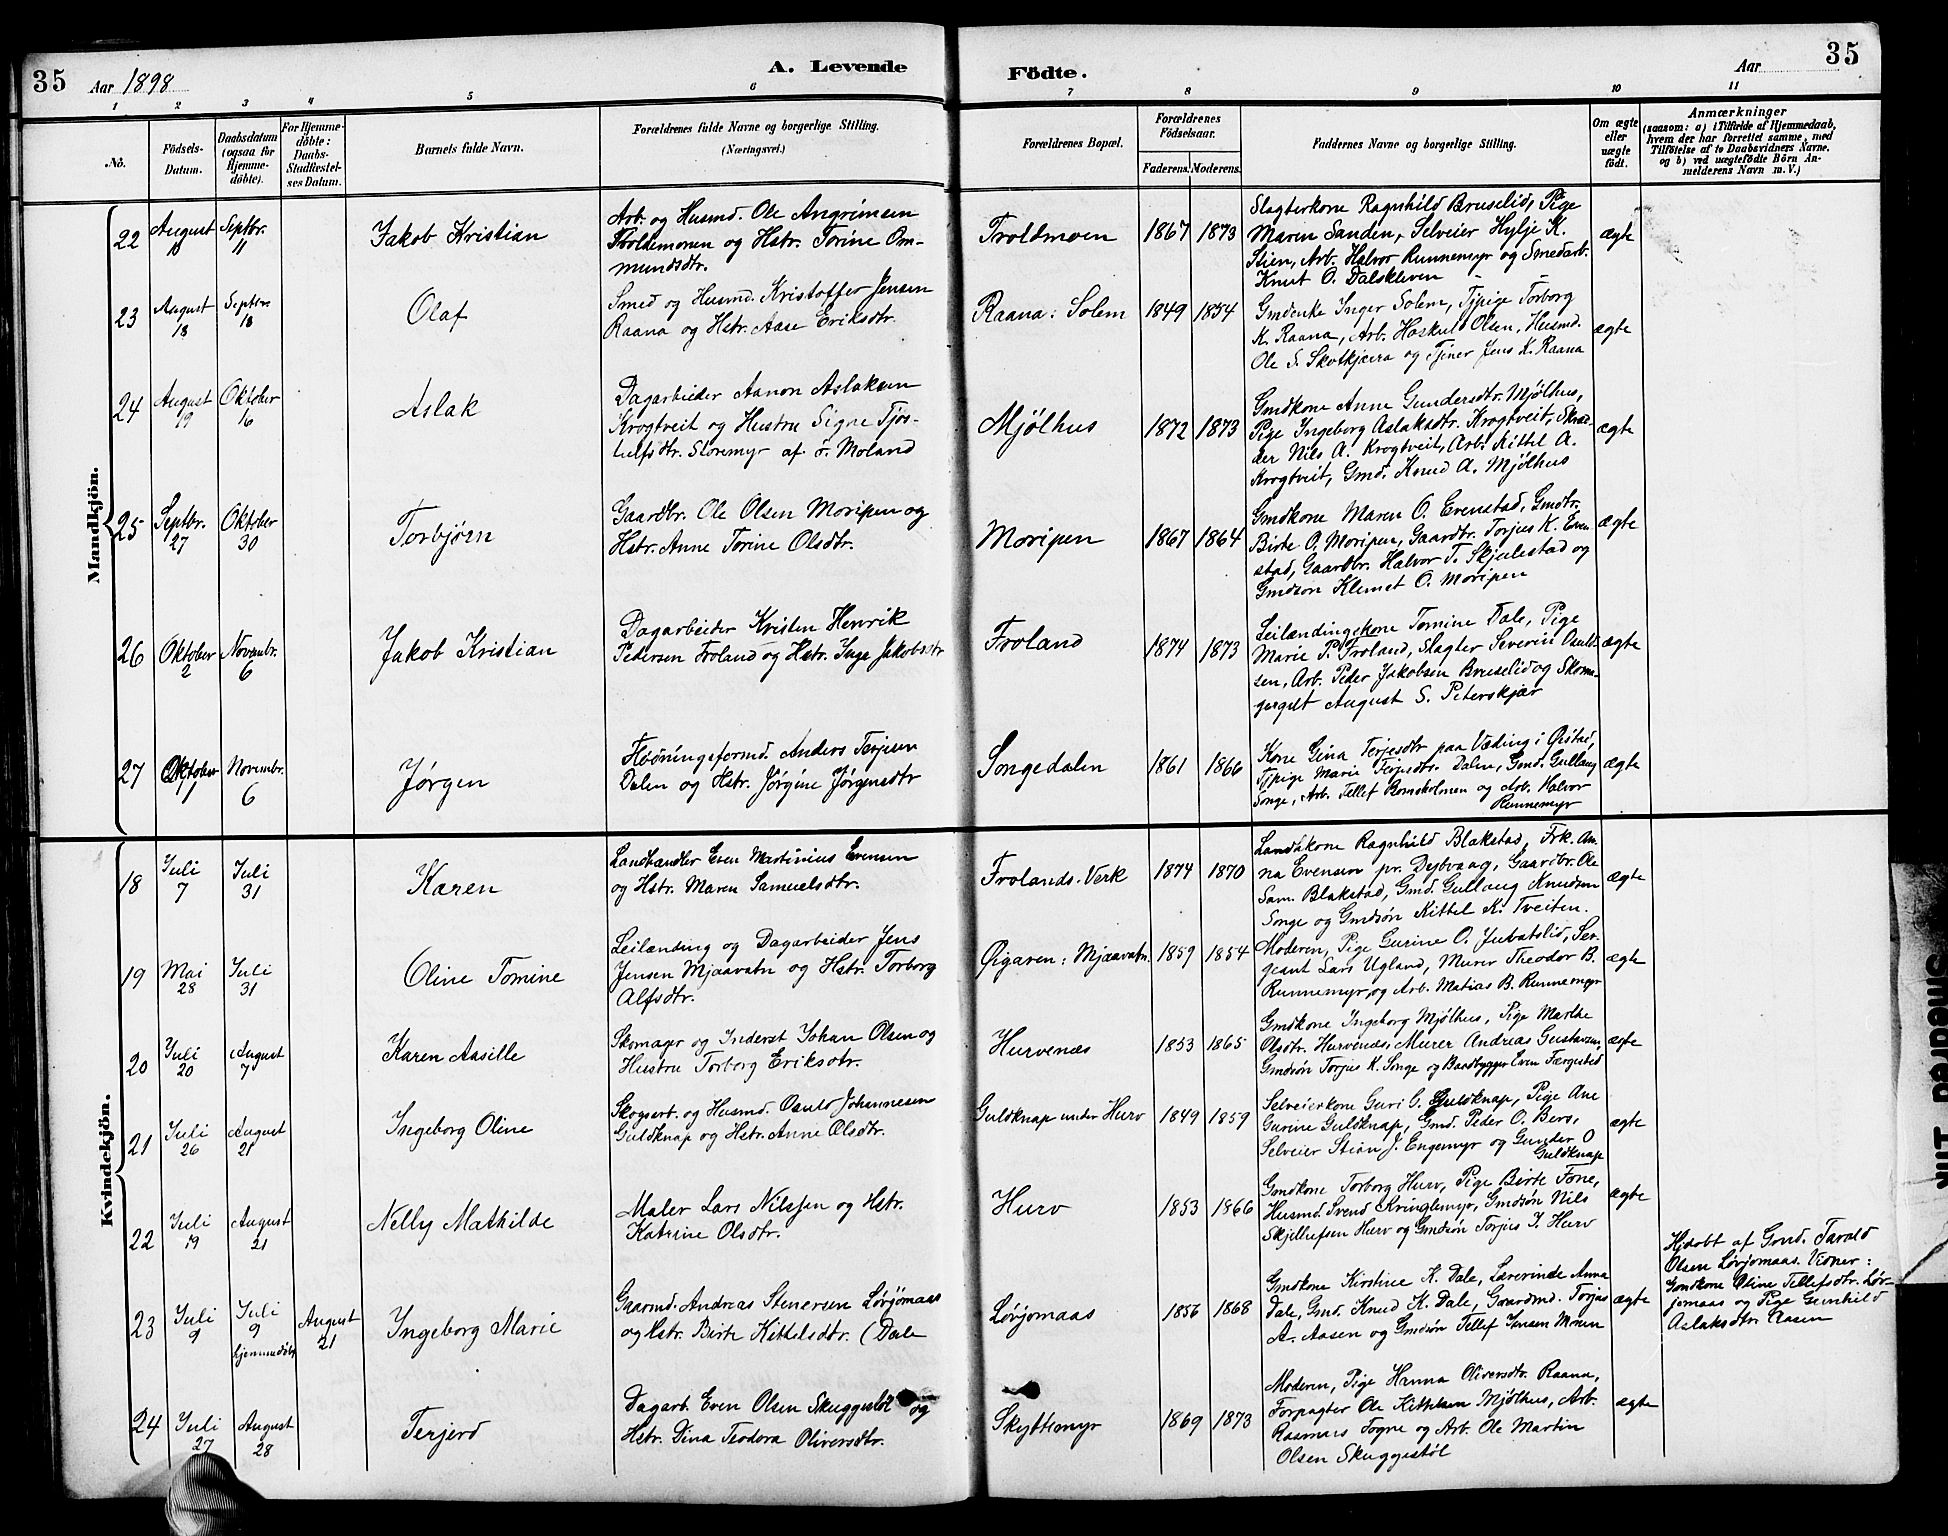 35 Aar 1898 A. Levende Födte. Aar 35
1 2 3 4 5 6 7 8 9 10 11
No.
Födsels-
Datum.
Daabsdatum
(ogsaa for
Hjemme-
döbte).
For Hjemme-
döbte:
Daabs-
Stadfæstel-
ses Datum.
Barnets fulde Navn.
Forældrenes fulde Navne og borgerlige Stilling.
(Næringsvei.)
Forældrenes Bopæl.
Forældrenes
Födselsaar.
Faderens. Moderens.
Faddernes Navne og borgerlige Stilling.
Om ægte
eller
uægte
födt.
Anmærkninger
(saasom: a) i Tilfælde af Hjemmedaab,
hvem der har forrettet samme, med
Tilföielse af to Daabsvidners Navne,
og b) ved uægtefödte Börn An-
melderens Navn m. V.)
Mandkjön.
22 August 10 Septbr. 11
Jakob Kristian
Arb. og Husmd. Ole Angrimsen
Troldmoren og Hstr. Torine Om-
mundsdtr.
Troldmoen 1867 1873
Slagterkone Ragnhild Bruselid, Pige
Maren Sanden, Selveier Hylje K.
Stien, Arb. Halvor Runnemyr og Smedarb.
Knut O. Dalskleven
ægte
23 August 13 Septbr. 18
Olaf
Smed og Husmd. Kristoffer Jensen
Raana og Hstr. Aase Eriksdtr.
Raana: Solem 1849 1854
Gmdenke Inger Solem, Tjpige Torborg
K. Raana, Arb. Hoskuld Olsen, Husmd.
Ole S. Skotkjæra og Tjener Jens K. Raana
ægte
24 August 19 Oktober 16
Aslak
Dagarbeider Aanon Aslaksen
Krogtveit og Hustru Signe Tjøs-
tulfsdtr. Storemyr af ø. Moland
Mjølhus 1872 1873
Gmdkone Anne Gundersdtr. Mjølhus,
Pige Ingeborg Aslaksdtr. Krogtveit, Skræd-
der Nils A. Krogtveit, Arb. Kittel A.
Krogtveit, Gmd. Knud A. Mjølhus
ægte
25 Septbr. 27 Oktober 30
Torbjørn
Gaardbr. Ole Olsen Moripen og
Hstr. Anne Torine Olsdtr.
Moripen 1867 1864
Gmdkone Maren O. Evenstad, Gmdtr.
Birte O. Moripen, Gaardbr. Torjus K. Even-
stad, Gaardbr. Halvor T. Skjulestad og
Gmdsøn Klemet O. Moripen
ægte
26 Oktober 2 Novembr. 6
Jakob Kristian
Dagarbeider Kristen Henrik
Pedersen Froland og Hstr. Inge Jakobsdtr
Froland 1874 1873
Leilændingskone Tomine Dale, Pige
Marie P. Froland, Slagter Severin Osuld-
sen, Arb. Peder Jakobsen Bruselid og Skoma-
gergut August S. Peterskjær
ægte
27 Oktober 1 Novembr. 6
Jørgen
Fløtningsformd. Anders Terjesen
Dalen og Hstr. Jørgine Jørgensdtr
Songedalen 1861 1866
Kone Gina Terjesdtr paa Væding i Øistad,
Tjpige Marie Terjesdtr. Dalen, Gmd. Gullaug
Songe, Arb. Tellef Bomsholmen og Arb. Halvor
Runnemyr
ægte
Kvindekjön.
18 Juli 7 Juli 31
Karen
Landhandler Even Martinius Evensen
og Hstr. Maren Samuelsdtr.
Frolands Verk 1874 1870
Landhkone Ragnhild Blakstad, Frk. An-
na Evensen pr. Dybvaag, Gaardbr. Ole
Sam. Blakstad, Gmd. Gullaug Knudsen
Songe og Gmdsøn Kittel K. Tveiten.
ægte
19 Mai 28 Juli 31
Oline Tomine
Leilænding og Dagarbeider Jens
Jensen Mjaavatn og Hstr. Torborg
Alfsdtr.
Øigaren: Mjaavatn. 1859 1854
Moderen, Pige Gurine O. Jurvatslid, Ser-
geant Lars Ugland, Murer Theodor B.
Runnemyr, og Arb. Matias B. Runnemyr
ægte
20 Juli 20 August 7
Karen Aasille
Skomager og Inderst Johan Olsen og
Hustru Torborg Eriksdtr.
Hurvenæs 1853 1865
Gmdkone Ingeborg Mjølhus, Pige Marthe
Olsdtr. Hurvenæs, Murer Andreas Gustavsen,
Gmdsøn Torjus K. Songe og Baadbygger Even Færgestad
ægte
21 Juli 26 August 21
Ingeborg Oline
Skogsarb. og Husmd. Osuld Johannesen
Guldknap og Hstr. Anne Olsdtr.
Guldknap under Hurv 1849 1859
Selveierkone Guri G. Guldknap, Pige Ane
Gurine Guldknap, Gmd. Peder O. Bers,
Selveier Stian J. Engemyr og Gunder O
Guldknap
ægte
22 Juli 19 August 21
Nelly Mathilde
Maler Lars Nilssen og Hstr.
Katrine Olsdtr.
Hurv 1853 1866
Gmdkone Torborg Hurv, Pige Birte Tone,
Husmd. Svend Kringlemyr, Gmdsøn Nils
Skjellufsen Hurv og Gmdsøn Torjus J. Hurv
ægte
23 Juli 9 Juli 9 hjemmedøbt August 21
Ingeborg Marie
Gaarmd. Andreas Stenersen Lørjomaas
og Hstr. Birte Kittelsdtr. (Dale
Lørjomaas 1856 1868
Gmdkone Kirstine K. Dale, Lærerinde Anna
Dale, Gmd. Knud K. Dale, Gaardmd. Torjus
A. Aasen og Gmdsøn Tellef Jensen Moen
ægte
Hjdøbt af Gmd. Tarald
Olsen Lørjomaas. Vidner:
Gmdkone Oline Tellefsdtr. Lør-
jomaas og Pige Gunhild
Aslaksdtr. Aasen
24 Juli 27 August 28
Terjerd
Dagarb. Even Olsen Skuggestøl og
Hstr. Dina Teodora Oliversdtr.
Skyttemyr 1869 1873
Moderen, Pige Hanna Oliversdtr. Raana,
Forpagter Ole Kittelsen Mjølhus, Arb.
Rasmus Fogne og Arb. Ole Martin
Olsen Skuggestøl
ægte